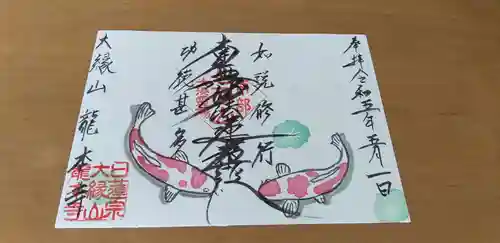 奉拝 令和五年五月一日
如説修行
南無妙法蓮華経
功徳甚多
大縁山 龍本寺
日蓮宗
大縁山
龍本寺